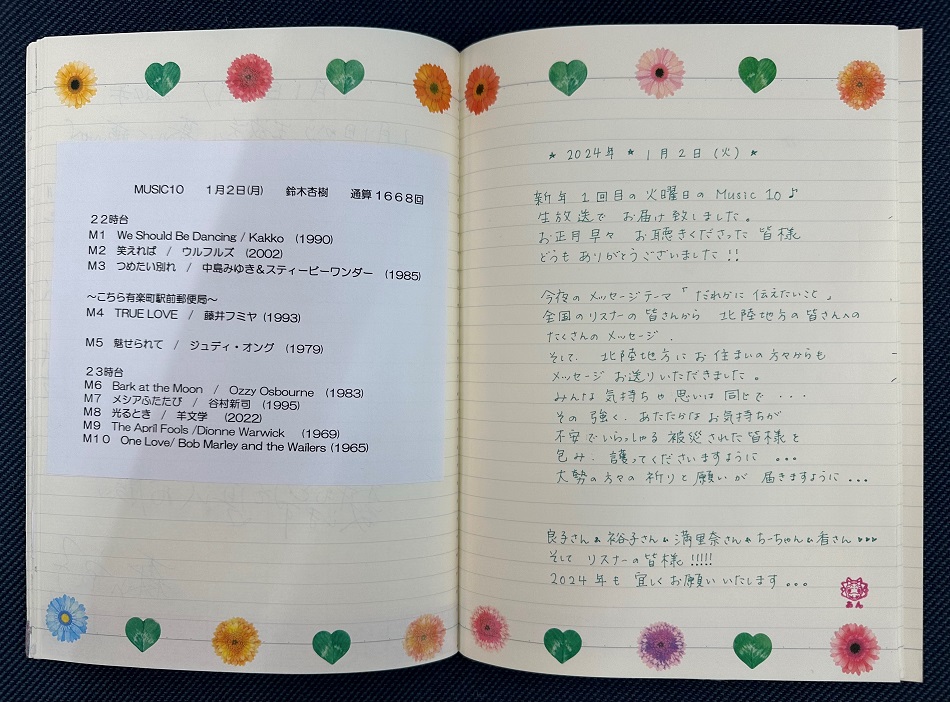 MUSIC10 1月2日(月) 鈴木杏樹 通算1668回
22時台
M1 We Should Be Dancing / Kakko (1990)
M2 笑えれば / ウルフルズ (2002)
M3 つめたい別れ / 中島みゆき&スティービーワンダー (1985)
~こちら有楽町駅前郵便局~
M4 TRUE LOVE / 藤井フミヤ (1993)
M5 魅せられて / ジュディ・オング (1979)
23時台
M6 Bark at the Moon / Ozzy Osbourne (1983)
M7 メシアふたたび / 谷村新司 (1995)
M8 光るとき / 羊文学 (2022)
M9 The April Fools /Dionne Warwick (1969)
M10 One Love/ Bob Marley and the Wailers (1965)
★ 2024年 ★ 1月2日(火) ★
新年1回目の火曜日のMusic 10♪
生放送で お届け致しました。
お正月早々 お聴きくださった 皆様
どうもありがとうございました!!
今夜の メッセージテーマ「だれかに 伝えたいこと」
全国のリスナーの 皆さんから 北陸地方の 皆さんへの
たくさんの メッセージ.
そして. 北陸地方に お住まいの 方々からも
メッセージ お送りいただきました。
みんな 気持ちや 思いは 同じで ・・・
その 強く. あたたかな お気持ちが
不安でいらっしゃる 被災された 皆様を
包み. 護ってくださいますように 。。。
大勢の方々の 祈りと 願いが 届きますように...
良子さん&裕子さん&満里奈さん&ちーちゃん&香さん♥♥♥
そして リスナーの 皆様!!!!!
2024年も 宜しくお願いいたします。。。